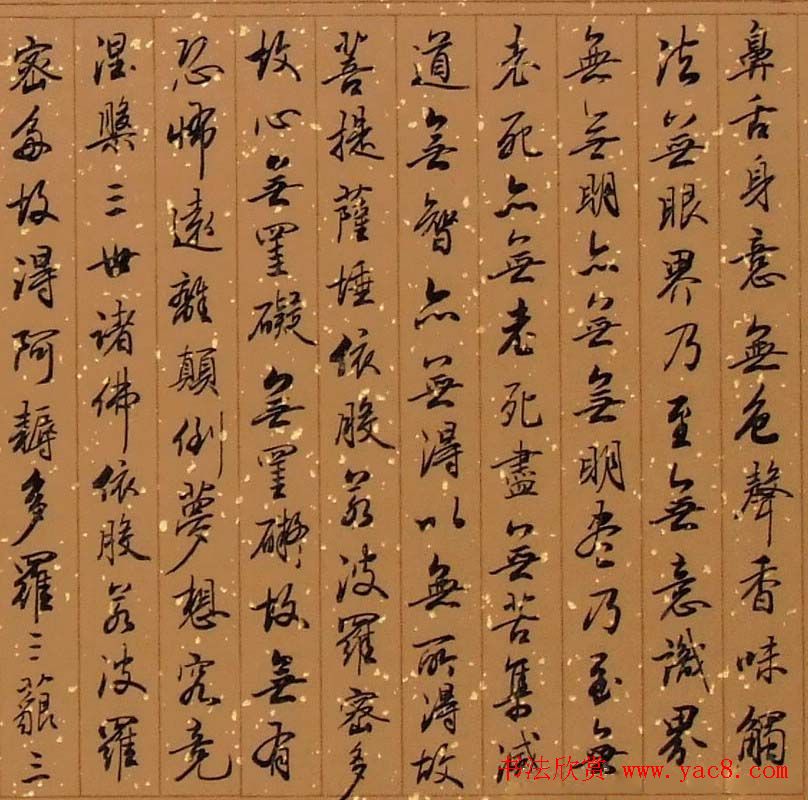 鼻舌身意無色聲香味觸
法無眼界乃至無意識界
無無明亦無無明盡乃至無
老死亦無老死盡無苦集滅
道無智亦無得以無所得故
菩提薩埵依般若波羅密多
故心無罣礙無罣礙故無有
恐怖遠離顛倒夢想究竟
涅槃三世諸佛依般若波羅
密多故得阿耨多羅三藐三
书法欣赏 www.yac8.com